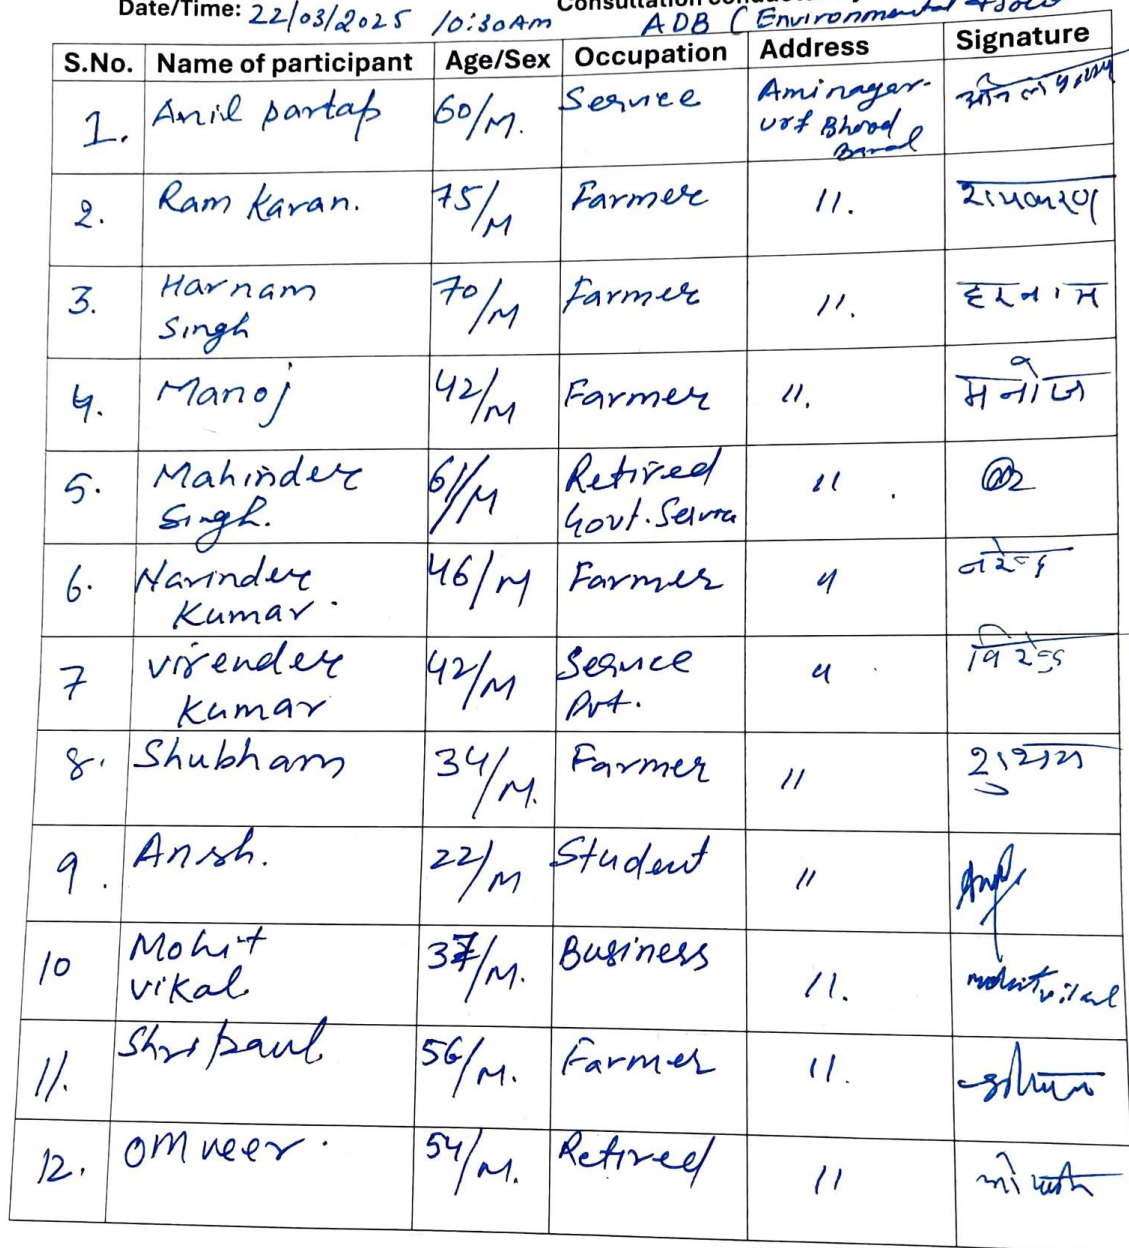 Date/Time: 22/03/2025 10:30 AM
ADB (Environmental
S.No. Name of participant Age/Sex Occupation Address Signature
1. Anil partap 60/M. Service Aminagar
urf Bhood
Baral
2. Ram Karan. 75/M Farmer 11. रामकरण
3. Harnam
Singh 70/M Farmer 11. हरनाम
4. Manoj 42/M Farmer 11. मनोज
5. Mahinder
Singh. 61/M Retired
Govt. 11
6. Narinder
Kumar. 46/M Farmer 11 नरेन्द्र
7 Virender
Kumar 42/M Service
Pvt. 11 विरेन्द्र
8. Shubham 34/M. Farmer 11
9. Ansh. 22/M Student 11
10 Mohit
vikal 37/M. Business 11. mohit vikal
11. Shripaul 56/M. Farmer 11.
12. OMveer. 54/M. Retired 11